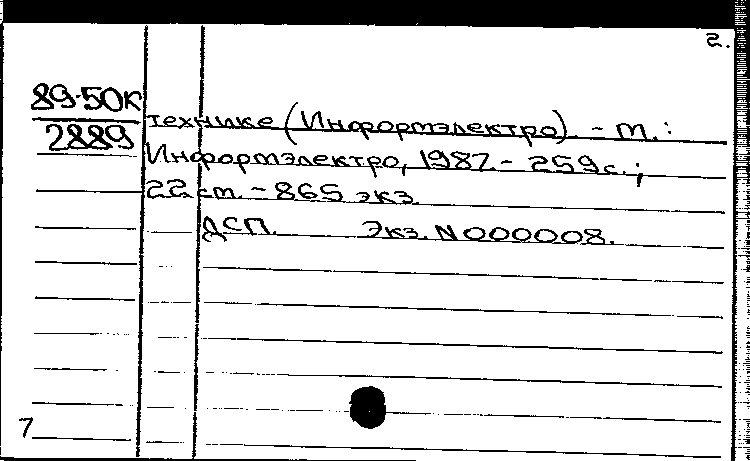 2.
89-50к
2889
технике (Информэлектро). - М.:
Информэлектро, 1987. - 259с.;
22 см. - 865 экз
ДСП. Экз. N000008.
7